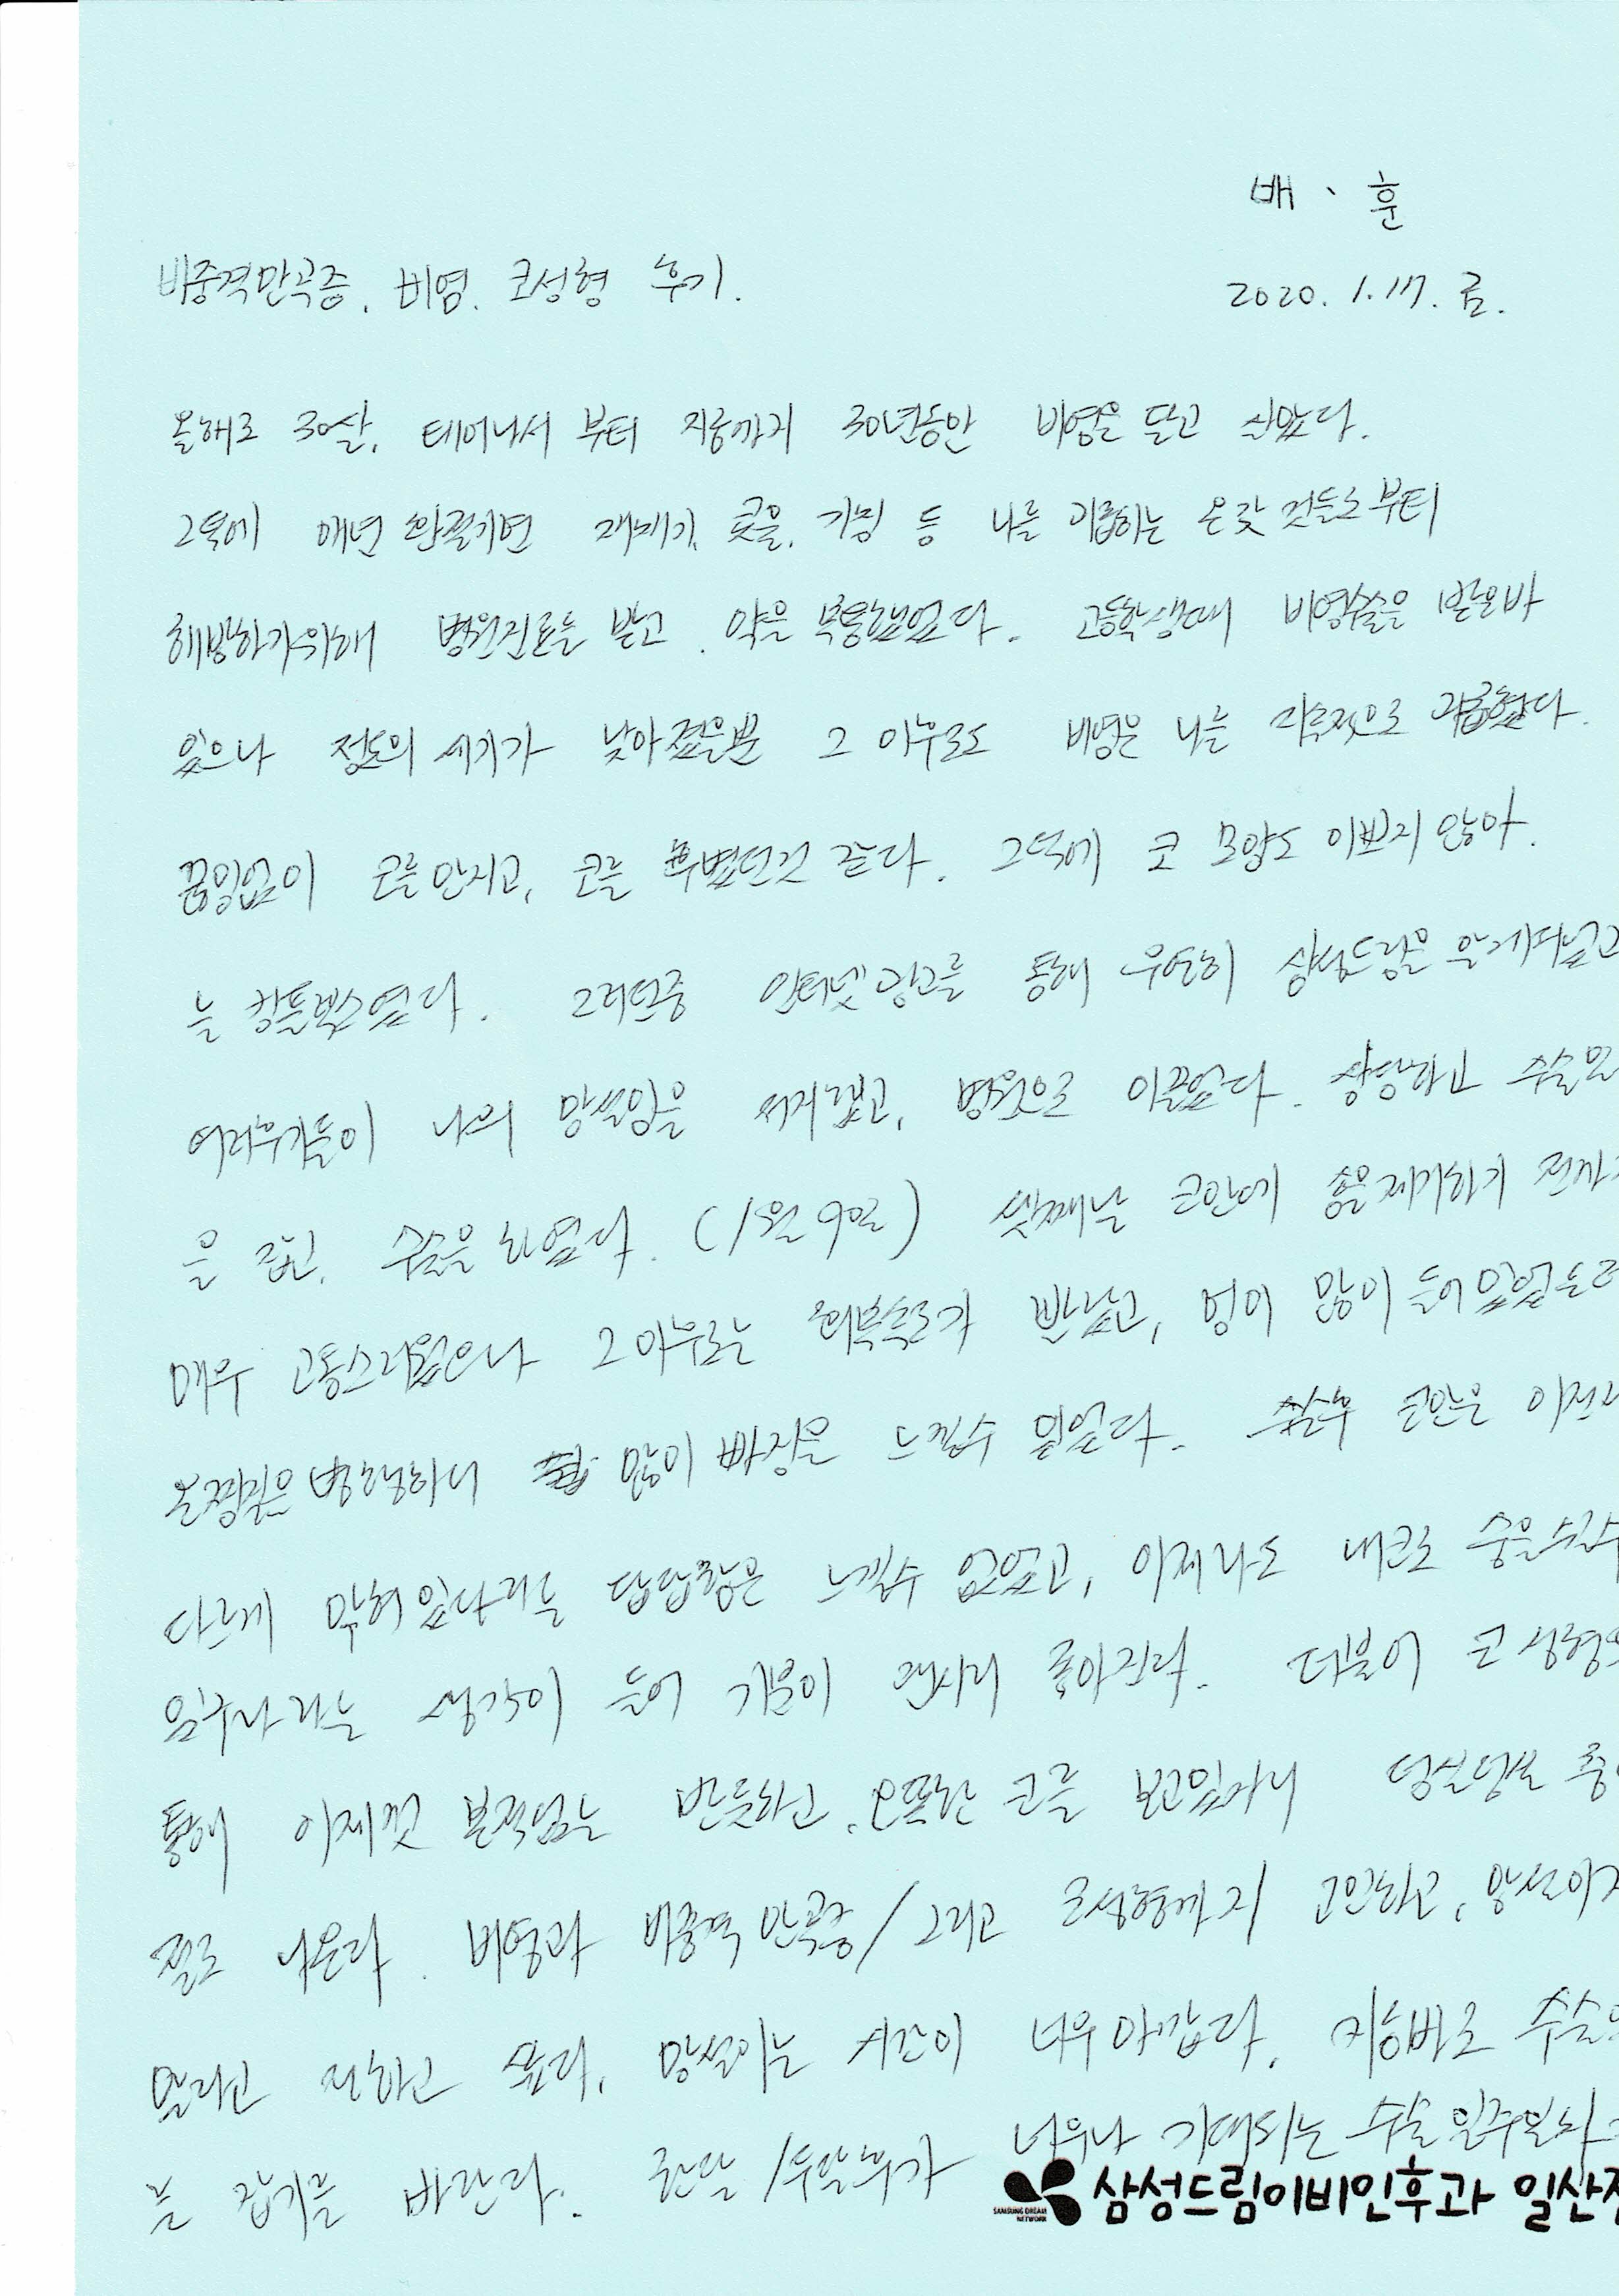 배、훈
비중격만곡증. 비염. 코성형 후기.
2020. 1. 17. 금.
올해로 30살. 태어나서 부터 지금까지 30년동안 비염을 달고 살았다.
그덕에 매년 환절기면 재채기, 콧물, 기침 등 나를 괴롭히는 온갖 것들로부터
해방하기위해 병원진료를 받고. 약을 복용했었다. 고등학생때 비염수술을 받은바
있으나 정도의 세기가 낮아졌을뿐 그 이후로도 비염은 나를 지속적으로 괴롭혔다.
끊임없이 코를 만지고, 코를 부볐던것 같다. 그덕에 코 모양도 이쁘지 않아.
늘 힘들었다. 그러던중 인터넷 광고를 통해 우연히 삼성드림을 알게되었고
여러후기들이 나의 망설임을 깨고, 병원으로 이끌었다. 상담하고 수술
을 했고. 수술을 하였다. (1월 9일) 솜을제거하기
매우 고통스러웠으나 그 이후로는 회복속도가 빨랐고, 멍이 많이 들어있었
병행하니 많이 느낄수 있었다. 수술후 코안은 이전과
다르게 막혀있다라는 답답함은 느낄수 없었고, 이제라도 내코로 숨을쉴수
있구나 라는 생각이 들어 기분이 좋아진다. 더불어 코 성형
통해 이제껏 없는 반듯하고, 오똑한 코를 보고있자니
절로 나온다. 비염과 비중격 만곡증/그리고 코성형까지 고민하고, 망설이지
말라고 전하고 싶다. 망설이는 시간이 너무 아깝다. 지금바로 수술
을 받기를 바란다. 한달/두달후가 너무나 기대되는 수술 일주일차
SAMSUNG DREAM
NETWORK
삼성드림이비인후과 일산